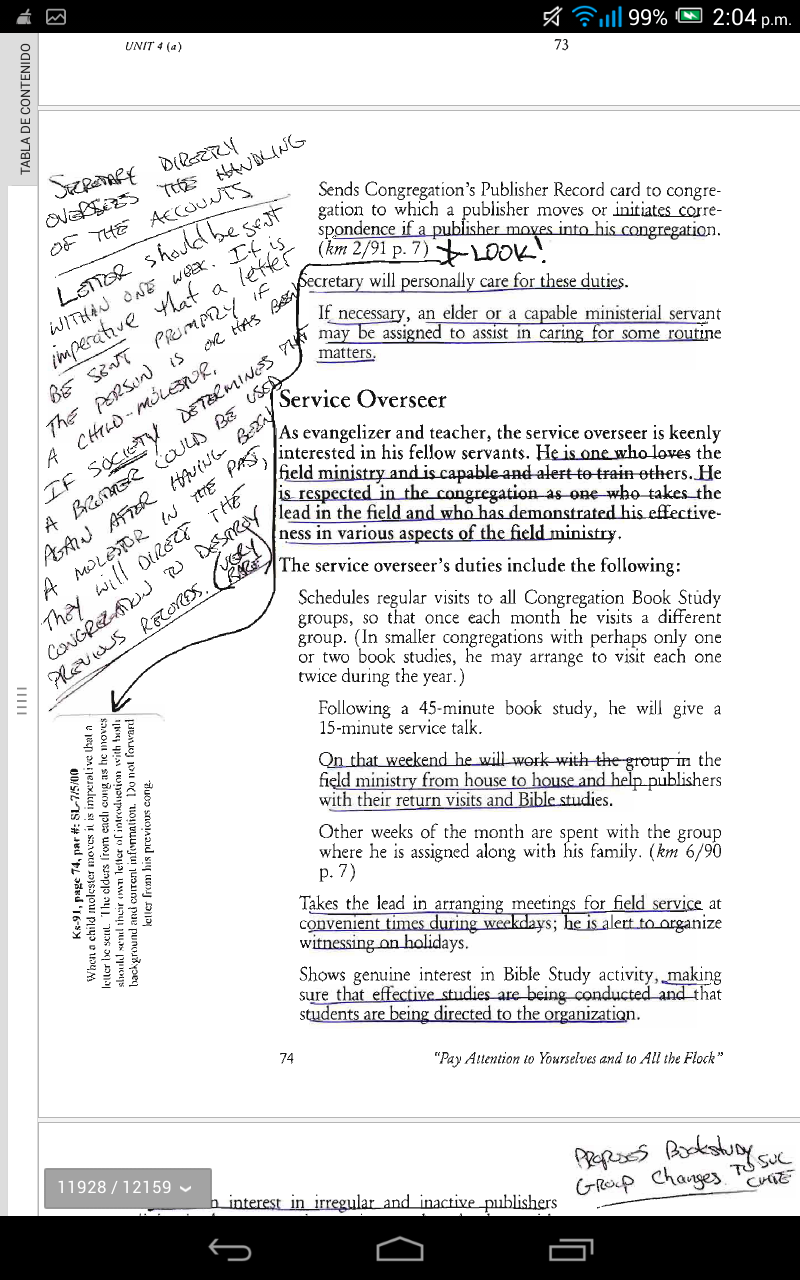 99% 2:04 p.m.
TABLA DE CONTENIDO
UNIT 4 (a) 73
SECRETARY DIRECTLY
OVERSEES THE HANDLING
OF THE ACCOUNTS
LETTER should be sent
WITHIN ONE WEEK. It is
imperative that a letter
BE SENT PROMPTLY IF
THE PERSON IS OR HAS BEEN
A CHILD-MOLESTOR.
IF SOCIETY DETERMINES THAT
A BROTHER COULD BE USED
AGAIN AFTER HAVING BEEN
A MOLESTOR IN THE PAST,
They will DIRECT THE
CONGREGATION TO DESTROY
PREVIOUS RECORDS. (VERY
RARE)
Sends Congregation's Publisher Record card to congre-
gation to which a publisher moves or initiates corre-
spondence if a publisher moves into his congregation.
(km 2/91 p. 7) LOOK!
Secretary will personally care for these duties.
If necessary, an elder or a capable ministerial servant
may be assigned to assist in caring for some routine
matters.
Service Overseer
As evangelizer and teacher, the service overseer is keenly
interested in his fellow servants. He is one who loves the
field ministry and is capable and alert to train others. He
is respected in the congregation as one who takes the
lead in the field and who has demonstrated his effective-
ness in various aspects of the field ministry.
The service overseer's duties include the following:
Schedules regular visits to all Congregation Book Study
groups, so that once each month he visits a different
group. (In smaller congregations with perhaps only one
or two book studies, he may arrange to visit each one
twice during the year.)
Following a 45-minute book study, he will give a
15-minute service talk.
On that weekend he will work with the group in the
field ministry from house to house and help publishers
with their return visits and Bible studies.
Other weeks of the month are spent with the group
where he is assigned along with his family. (km 6/90
p. 7)
Takes the lead in arranging meetings for field service at
convenient times during weekdays; he is alert to organize
witnessing on holidays.
Shows genuine interest in Bible Study activity, making
sure that effective studies are being conducted and that
students are being directed to the organization.
Ks-91, page 74, par #: SL-7/5/00
When a child molester moves it is imperative that a
letter be sent. The elders from each cong as he moves
should send their own letter of introduction with both
background and current information. Do not forward
letter from his previous cong.
74 "Pay Attention to Yourselves and to All the Flock"
PROPOSES Bookstudy
GROUP Changes TO SVC
CMTE
11928 / 12159
n interest in irregular and inactive publishers